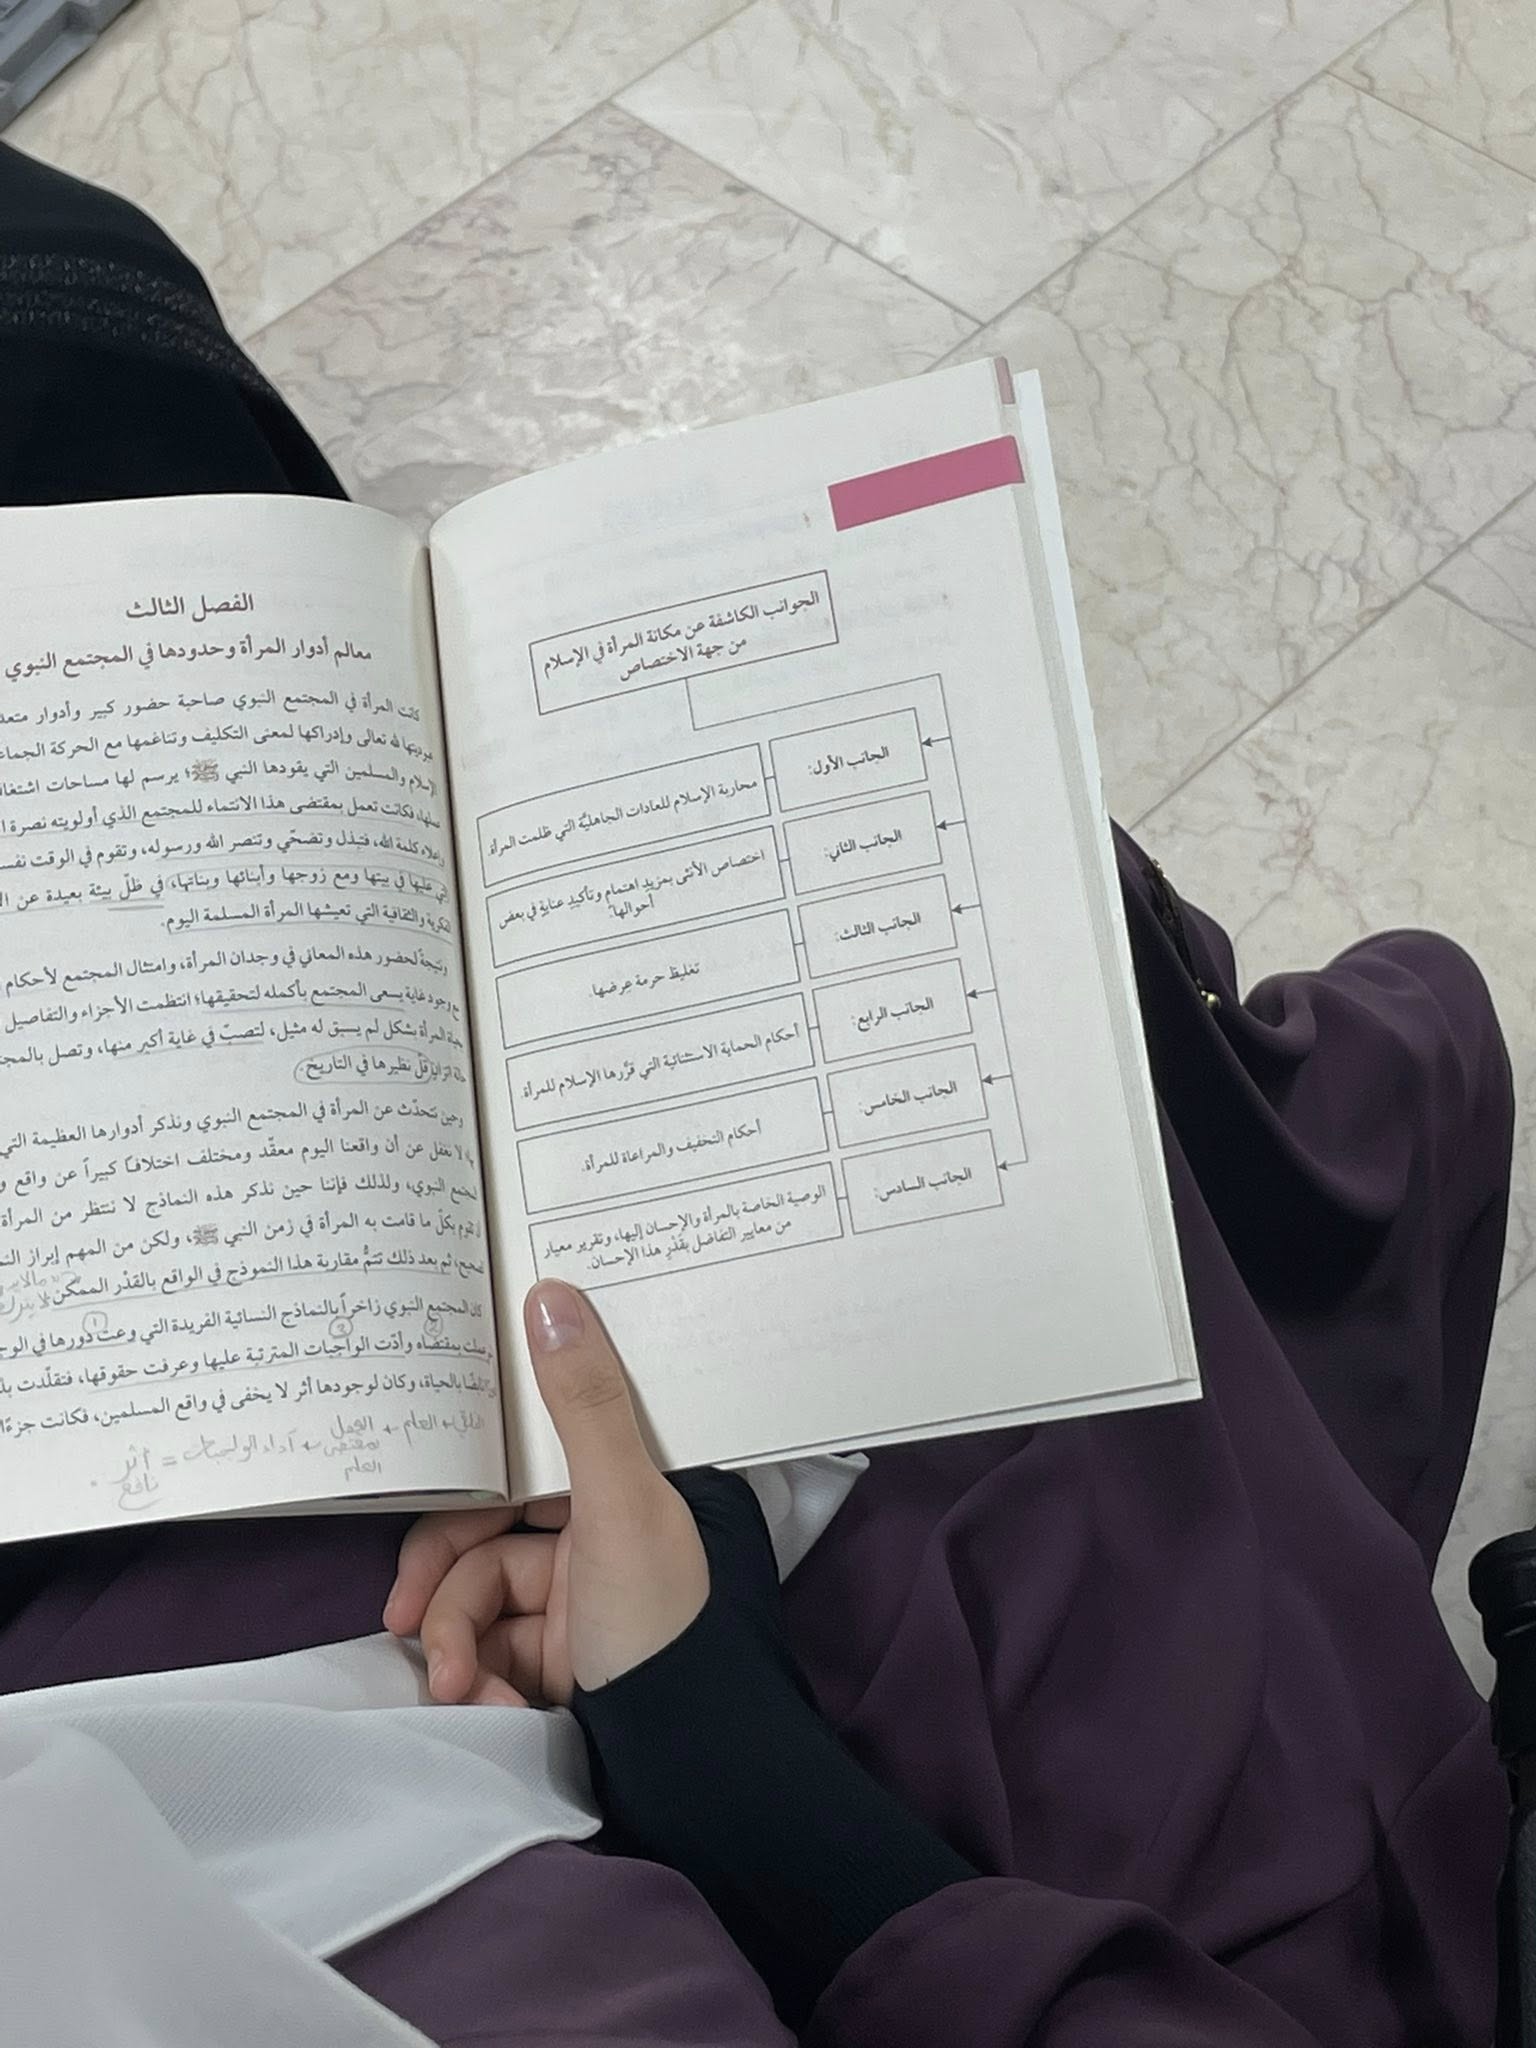 الجوانب الكاشفة عن مكانة المرأة في الإسلام
من جهة الاختصاص
الجانب الأول:
محاربة الإسلام للعادات الجاهليَّة التي ظلمت المرأة.
الجانب الثاني:
اختصاص الأنثى بمزيدِ اهتمام وتأكيدِ عنايةٍ في بعض
أحوالها.
الجانب الثالث:
تغليظ حرمة عِرضها.
الجانب الرابع:
أحكام الحماية الاستثنائية التي قرَّرها الإسلام للمرأة.
الجانب الخامس:
أحكام التخفيف والمراعاة للمرأة.
الجانب السادس:
الوصية الخاصة بالمرأة والإحسان إليها، وتقرير معيار
من معايير التفاضل بقَدْرِ هذا الإحسان.
الفصل الثالث
معالم أدوار المرأة وحدودها في المجتمع النبوي
كانت المرأة في المجتمع النبوي صاحبة حضور كبير وأدوار
لله تعالى وإدراكها لمعنى التكليف وتناغمها مع الحركة
والمسلمين التي يقودها النبي ﷺ؛ يرسم لها مساحات
فكانت تعمل بمقتضى هذا الانتماء للمجتمع الذي أولويته نصرة
وإعلاء كلمة الله، فتبذل وتضحّي وتنصر الله ورسوله، وتقوم في الوقت
عليها في بيتها ومع زوجها وأبنائها وبناتها، في ظلّ بيئة بعيدة عن
والثقافية التي تعيشها المرأة المسلمة اليوم.
ونتيجةً لحضور هذه المعاني في وجدان المرأة، وامتثال المجتمع لأحكام
وجود غاية يسعى المجتمع بأكمله لتحقيقها؛ انتظمت الأجزاء والتفاصيل
المرأة بشكل لم يسبق له مثيل، لتصبّ في غاية أكبر منها، وتصل
قلّ نظيرها في التاريخ.
وحين نتحدّث عن المرأة في المجتمع النبوي ونذكر أدوارها العظيمة التي
لا نغفل عن أن واقعنا اليوم معقّد ومختلف اختلافاً كبيراً عن واقع
النبوي، ولذلك فإننا حين نذكر هذه النماذج لا ننتظر من المرأة
بكلّ ما قامت به المرأة في زمن النبي ﷺ، ولكن من المهم إبراز
ثم بعد ذلك تتمُّ مقاربة هذا النموذج في الواقع بالقدْر الممكن
كان المجتمع النبوي زاخراً بالنماذج النسائية الفريدة التي وعت دورها في
بمقتضاه وأدّت الواجبات المترتبة عليها وعرفت حقوقها، فتقلّدت
بالحياة، وكان لوجودها أثر لا يخفى في واقع المسلمين، فكانت
+ العلم + العمل بمقتضى العلم + أداء الواجبات = أثر نافع.